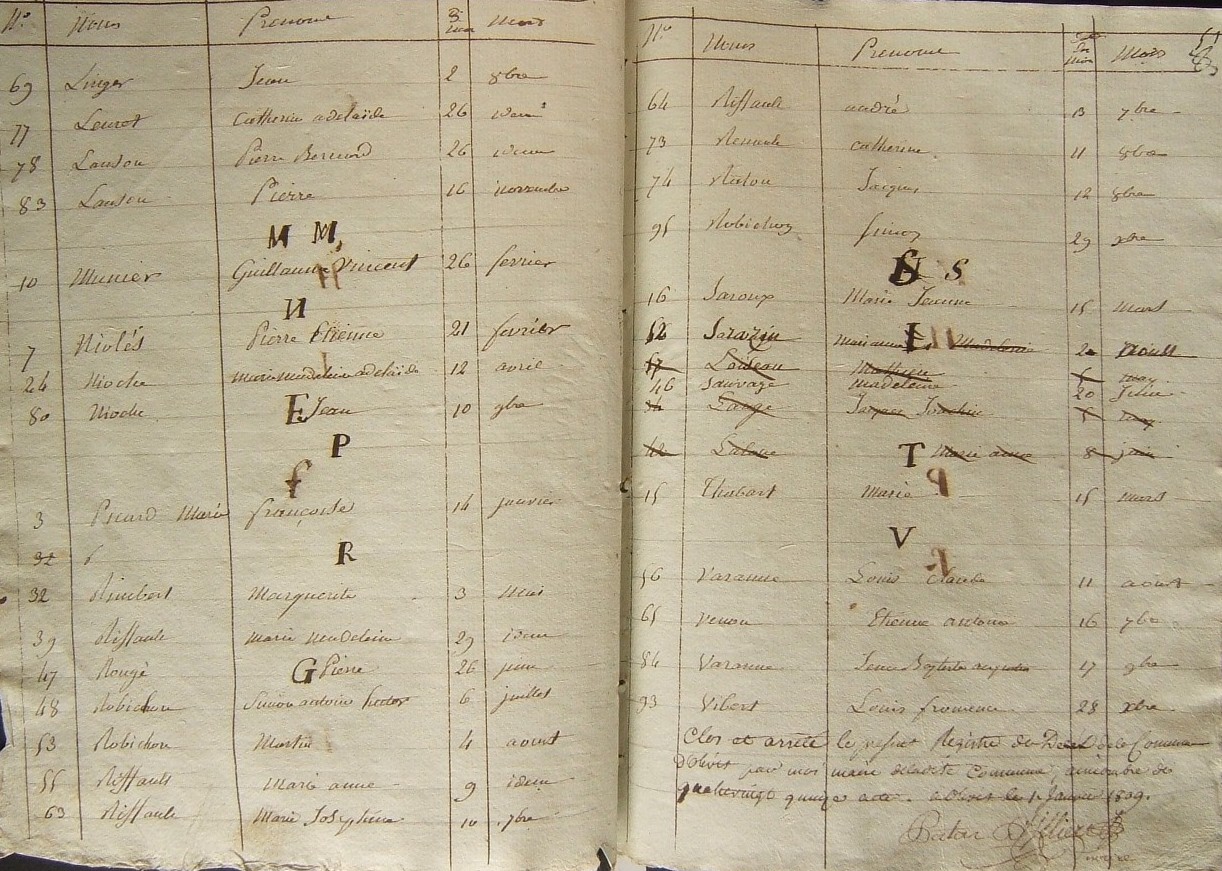 No Noms Prenoms Mois
69 Linger Jean 2 8bre
77 Leurot Catherine adelaïde 26 idem
78 Lanson Pierre Bernard 26 idem
83 Lanson Pierre 16 novembre
M M
10 Munier Guillaume Vincent 26 fevrier
N
7 Niolés Pierre Etienne 21 fevrier
24 Nioche Marie Madeleine adelaïde 12 avril
80 Nioche Jean 10 9bre
E
P
f
3 Picard Marie françoise 14 janvier
32
R
32 Rimbert Marguerite 3 Mai
39 Riffault Marie Madelaine 29 idem
47 Rougé Pierre 26 juin
G
48 Robichon Simon antoine hector 6 juillet
53 Robichon Martin 4 aoust
55 Riffault Marie anne 9 idem
63 Riffault Marie Joséphine 10 7bre
No Noms Prenoms Mois
64 Riffault andré 13 7bre
73 Renault Catherine 11 8bre
74 Ratou Jacques 12 8bre
95 Robichon 29 xbre
S S
16 Saroux Marie Jeanne 15 mars
52 Sarazin Marianne Madeleine 2 Aoust
17 Loiseau Mathieu may
46 Sauvage Madeleine 20 Juin
Joachim
Laloue T Marie anne 8 juin
15 Thabart Marie 15 mars
V
56 Varanne Louis Claude 11 aoust
65 Venon Etienne antoine 16 7bre
84 Varanne Jean Baptiste auguste 17 9bre
93 Vibert Louis fromence 28 xbre
Clos et arrêté le present Registre de Décès de la Commune
d'Olivet par moi maire de ladite Commune, au nombre de
quatrevingt quinze acte. a Olivet le 1 Janvier 1809.